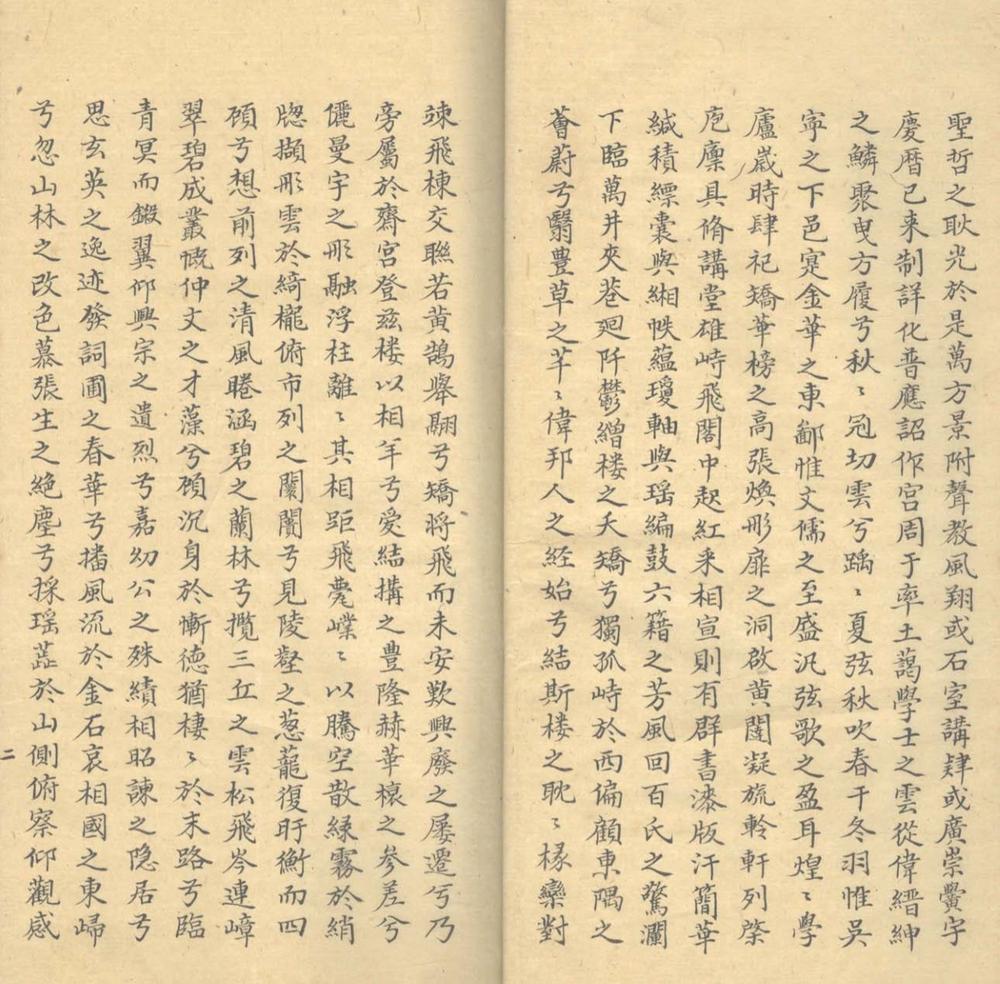 聖哲之耿光於是萬方景附聲教風翔或石室講肄或廣崇黌宇
慶曆已来制詳化普應詔作宫周于率土藹學士之雲從偉縉紳
之鱗聚曳方履兮秋〻冠切雲兮踽〻夏弦秋吹春干冬羽惟吳
寜之下邑寔金華之東鄙惟文儒之至盛汎弦歌之盈耳煌〻學
廬嵗時肆祀矯華榜之高張煥彤扉之洞啟黄閨凝旒軨軒列棨
庖廪具脩講堂雄峙飛閣中起紅采相宣則有群書漆版汗簡華
緘積縹囊與緗帙蘊瓊軸與瑶編鼓六籍之芳風回百氏之驚瀾
下臨萬井夾巷廻阡鬱繒楼之夭矯兮獨孤峙於西偏顧東隅之
薈蔚兮翳豊草之芊〻偉邦人之经始兮結斯楼之耽〻椽欒對
竦飛棟交聮若黄鵠舉翮兮矯将飛而未安歎興廢之屡遷兮乃
旁屬於齋宫登兹楼以相羊兮爱結搆之豊隆赫華榱之参差兮
儷曼宇之彤融浮柱離〻其相距飛甍嶫〻以騰空散緑霧於綃
牎擷彤雲於綺櫳俯市列之闤闠兮見陵壑之葱蘢復盱衡而四
頎兮想前列之清風睠涵碧之蘭林兮攬三丘之雲松飛岑連嶂
翠碧成叢慨仲文之才藻兮頎沉身於慚徳猶棲〻於末路兮臨
青冥而鍛翼仰興宗之遺烈兮嘉幼公之殊績相昭諫之隐居兮
思玄英之逸迹發詞圃之春華兮播風流於金石哀相國之東歸
兮忽山林之改色慕張生之絶塵兮採瑶蕋於山側俯察仰觀感
二